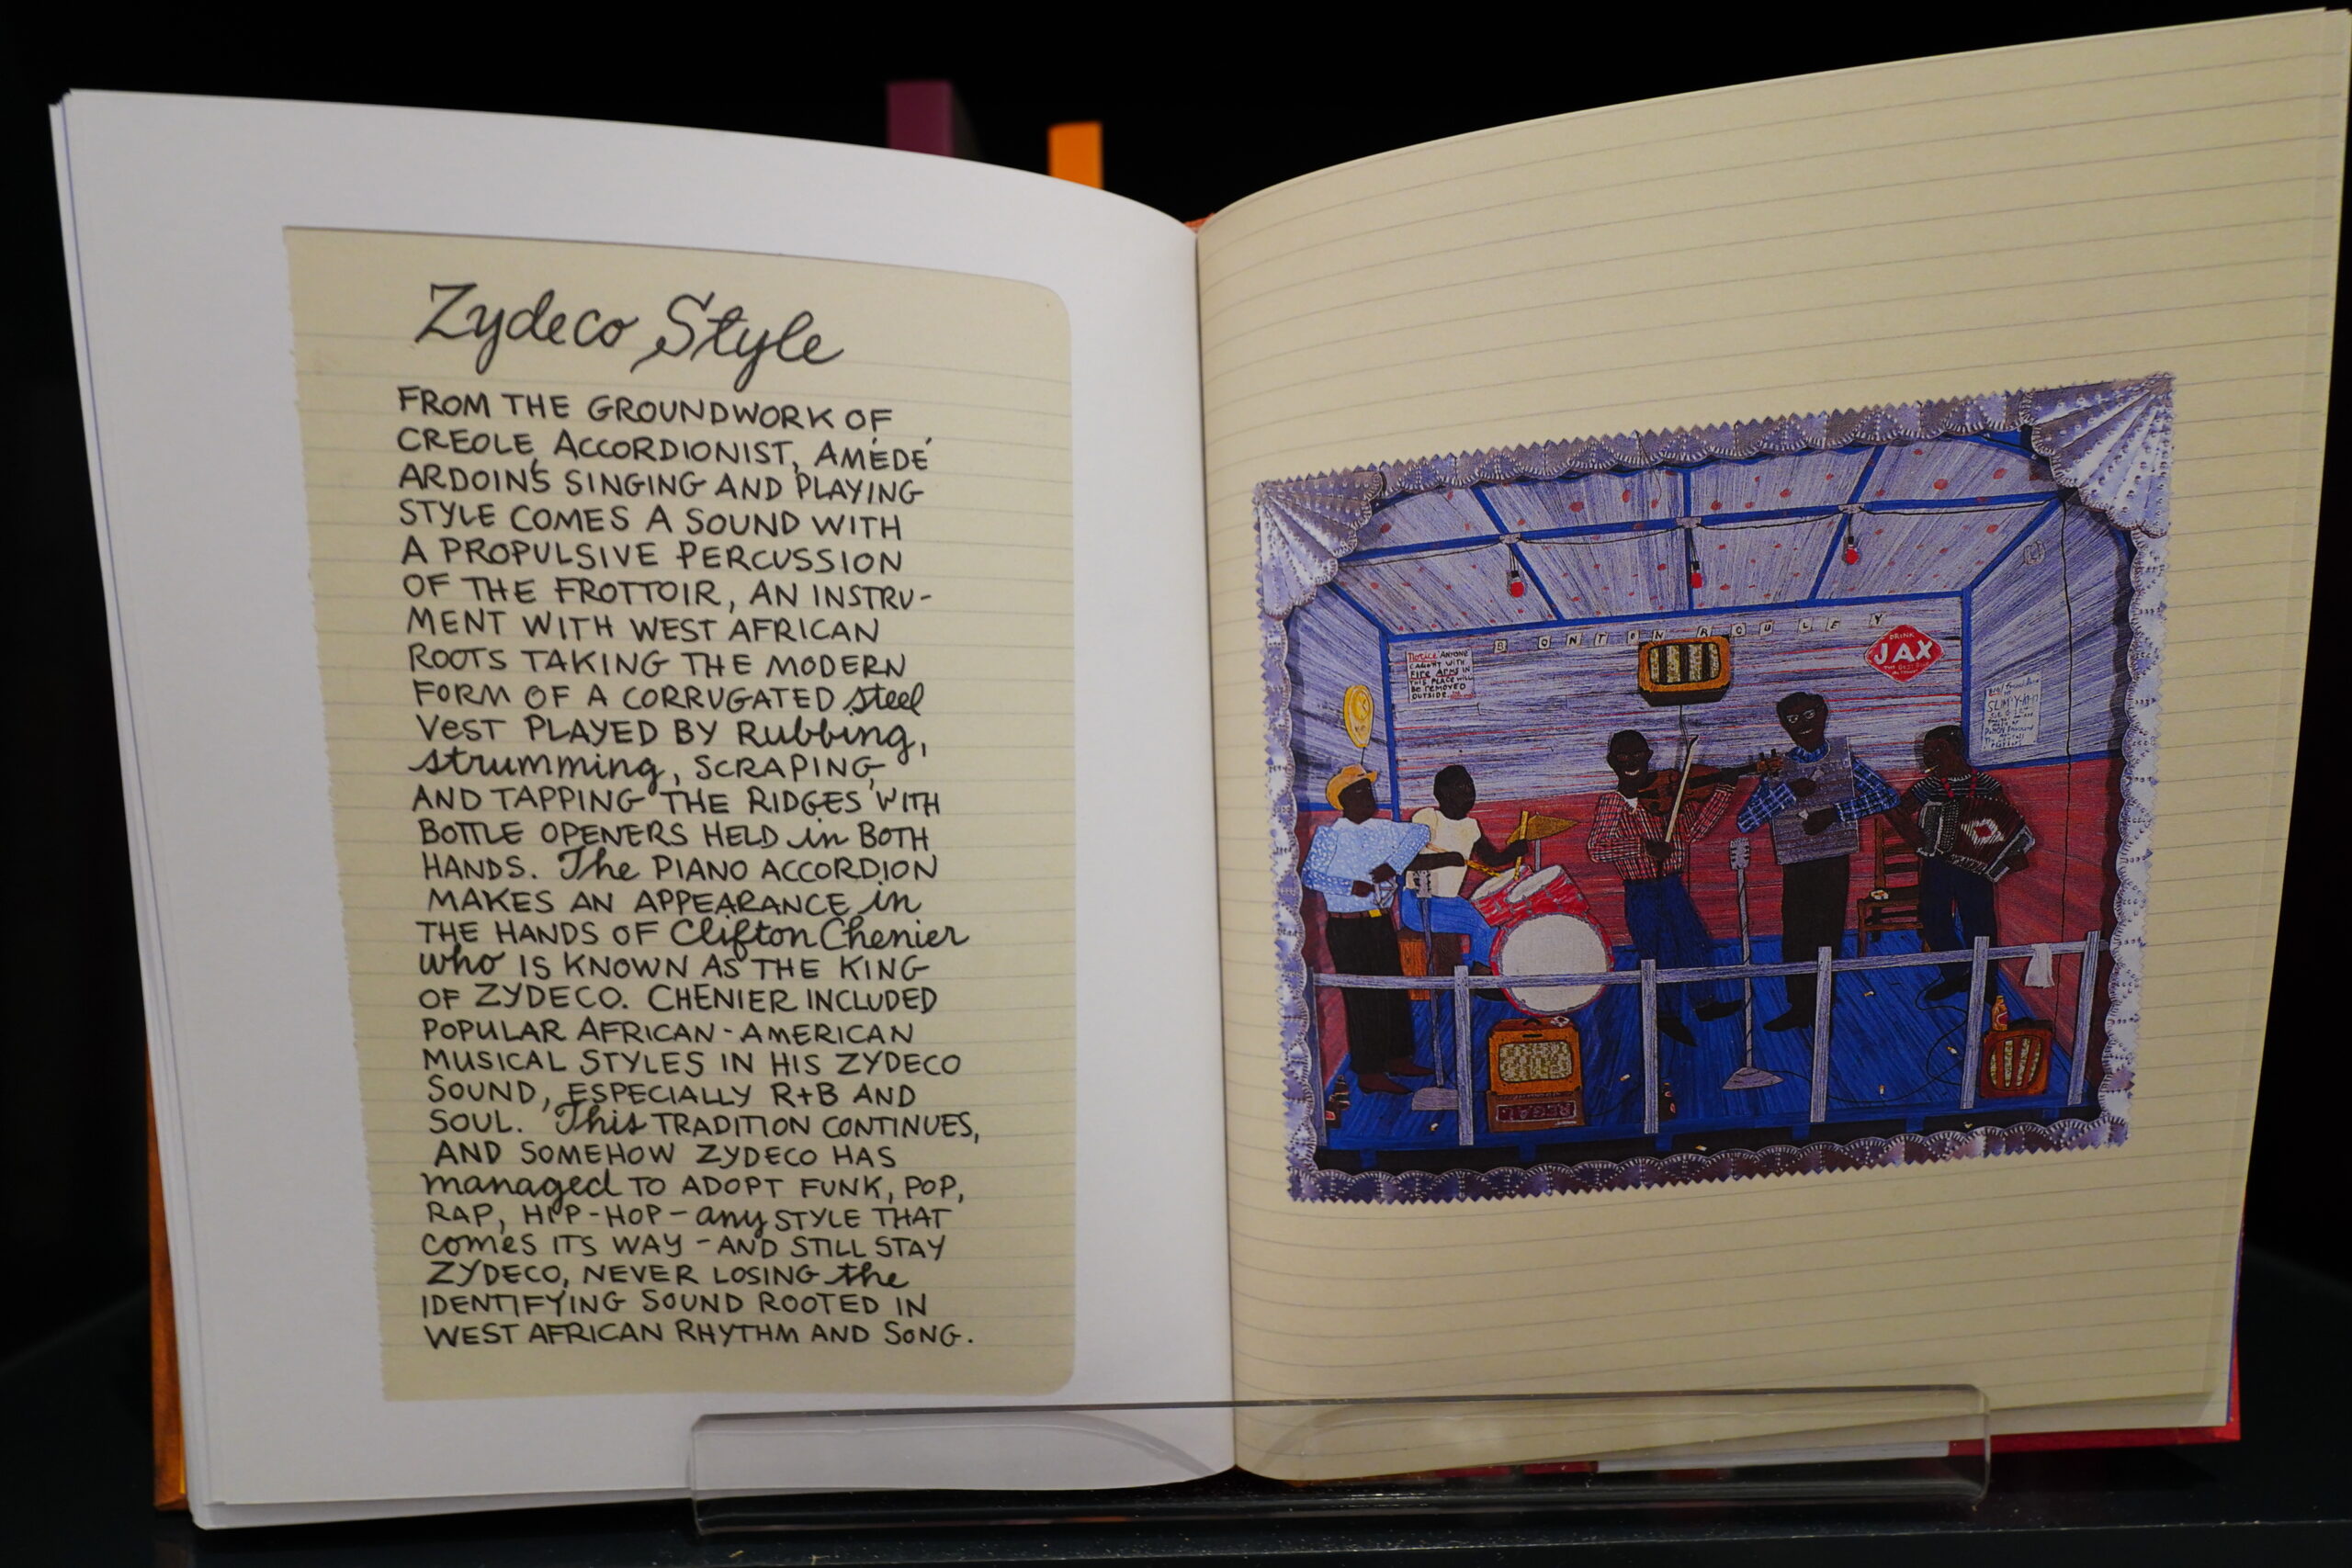 Zydeco Style
FROM THE GROUNDWORK OF
CREOLE ACCORDIONIST, AMÉDÉ
ARDOIN'S SINGING AND PLAYING
STYLE COMES A SOUND WITH
A PROPULSIVE PERCUSSION
OF THE FROTTOIR, AN INSTRU-
MENT WITH WEST AFRICAN
ROOTS TAKING THE MODERN
FORM OF A CORRUGATED steel
VEST PLAYED BY Rubbing,
strumming, SCRAPING,
AND TAPPING THE RIDGES WITH
BOTTLE OPENERS HELD in BOTH
HANDS. The PIANO ACCORDION
MAKES AN APPEARANCE in
THE HANDS OF Clifton Chenier
who IS KNOWN AS THE KING
OF ZYDECO. CHENIER INCLUDED
POPULAR AFRICAN-AMERICAN
MUSICAL STYLES IN HIS ZYDECO
SOUND, ESPECIALLY R+B AND
SOUL. This TRADITION CONTINUES,
AND SOMEHOW ZYDECO HAS
managed TO ADOPT FUNK, POP,
RAP, HIP-HOP-any STYLE THAT
comes ITS WAY-AND STILL STAY
ZYDECO, NEVER LOSING the
IDENTIFYING SOUND ROOTED IN
WEST AFRICAN RHYTHM AND SONG.
BON TON ROULEY
NOTICE ANYONE
CAUGHT WITH
FIRE ARMS IN
THIS PLACE WILL
BE REMOVED
OUTSIDE
DRINK
JAX
SLIM'S Y-KI-KI
REGAL